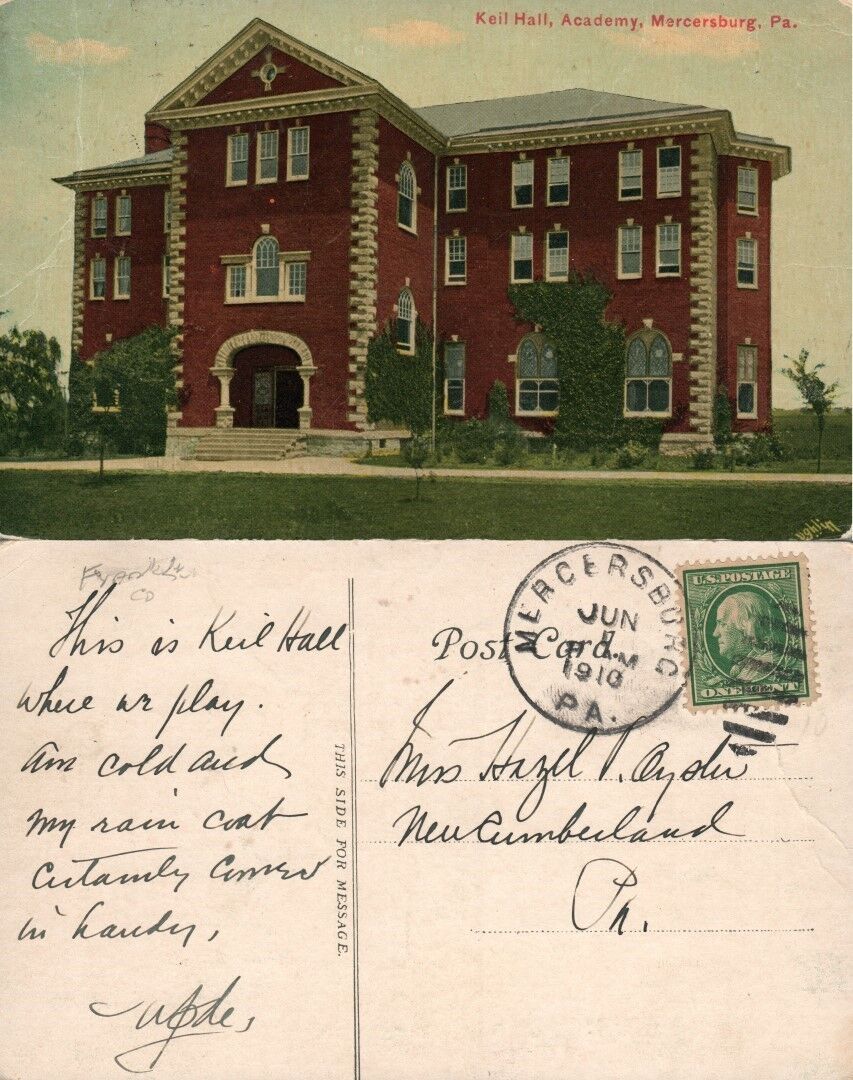 Keil Hall, Academy, Mercersburg, Pa.
This is Keil Hall
where we play.
Am cold and
my rain coat
certainly comes
in handy,
THIS SIDE FOR MESSAGE.
Post Card.
MERCERSBURG
JUN
1910
PA.
U.S. POSTAGE
ONE CENT
Miss Hazel V. Oyster
New Cumberland
Pa.